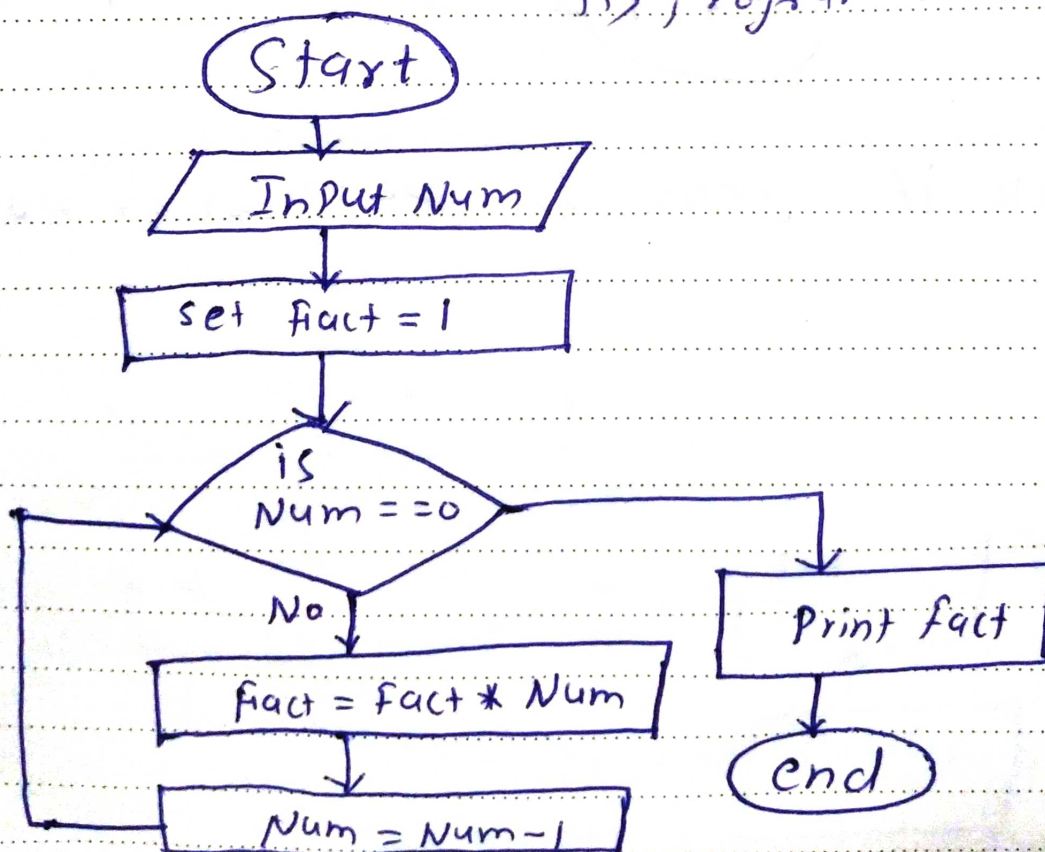 Start
Input Num
set fact = 1
is
Num == 0
No
Print fact
fact = fact * Num
end
Num = Num-1